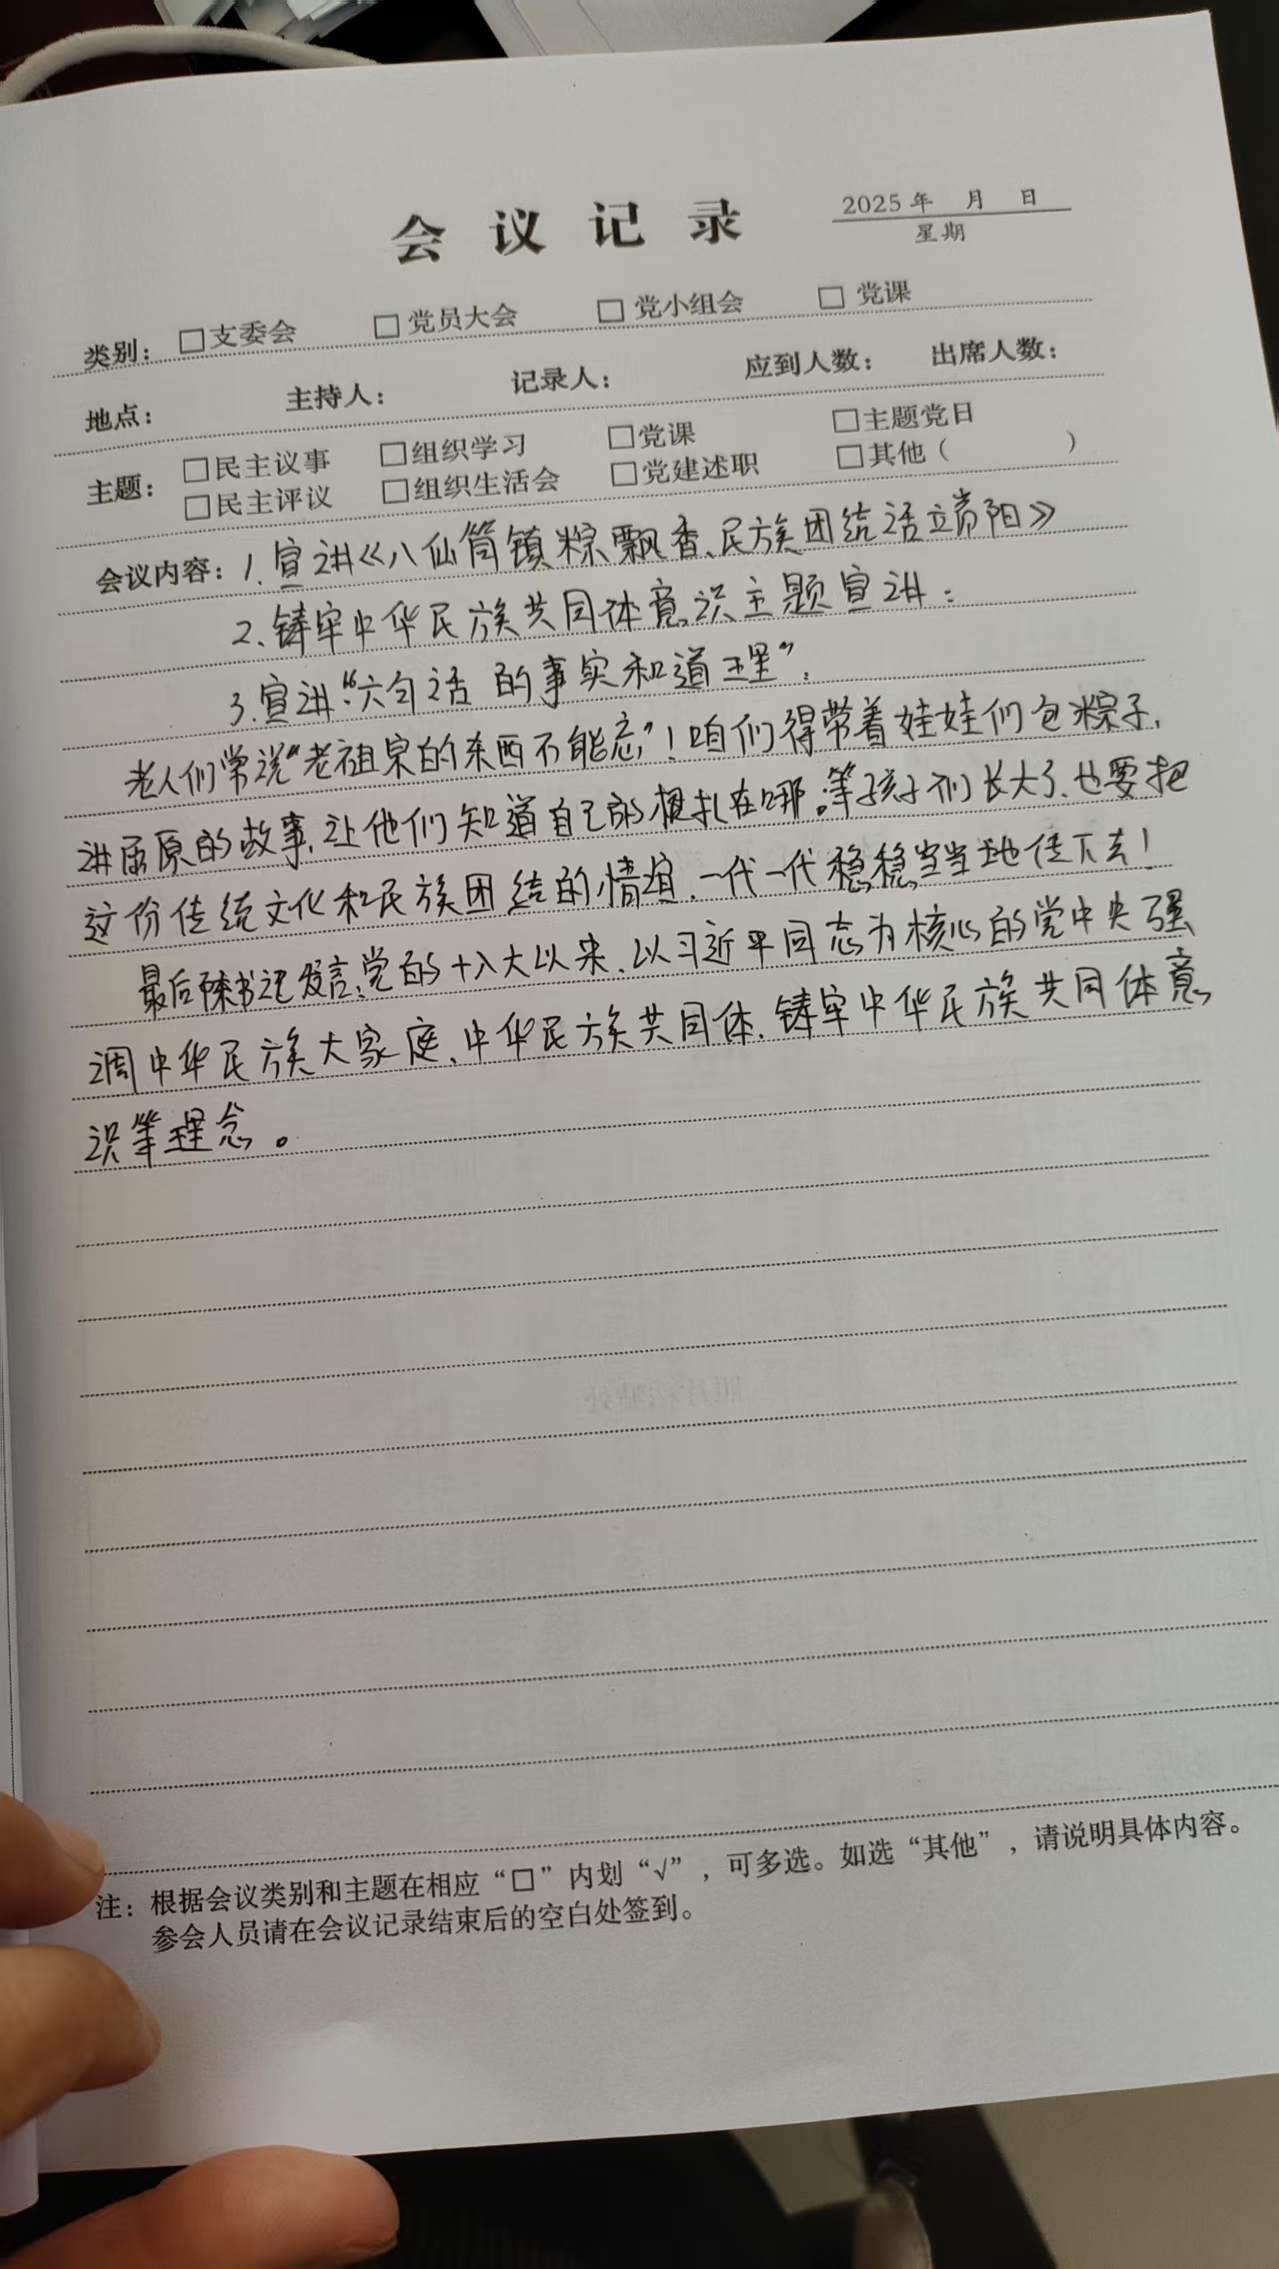 会议记录
2025 年 月 日
星期
类别： □支委会 □党员大会 □党小组会 □党课
地点： 主持人： 记录人： 应到人数： 出席人数：
主题： □民主议事 □组织学习 □党课 □主题党日
□民主评议 □组织生活会 □党建述职 □其他（ ）
会议内容：1.宣讲《八仙筒镇粽飘香、民族团结话端阳》
2.铸牢中华民族共同体意识主题宣讲：
3.宣讲“六句话的事实和道理”.
老人们常说“老祖宗的东西不能忘”！咱们得带着娃娃们包粽子，
讲屈原的故事，让他们知道自己的根扎在哪。等孩子们长大了，也要把
这份传统文化和民族团结的情谊，一代一代稳稳当当地传下去！
最后陈书记发言，党的十八大以来，以习近平同志为核心的党中央强
调中华民族大家庭、中华民族共同体、铸牢中华民族共同体意
识等理念。
注：根据会议类别和主题在相应“□”内划“√”，可多选。如选“其他”，请说明具体内容。
参会人员请在会议记录结束后的空白处签到。